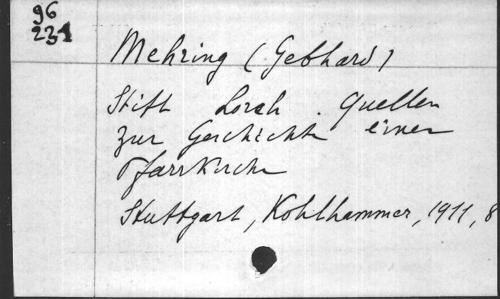 96
231
Mehring (Gebhard)
Stift Lorch. Quellen
zur Geschichte einer
Pfarrkirche
Stuttgart, Kohlhammer, 1911, 8